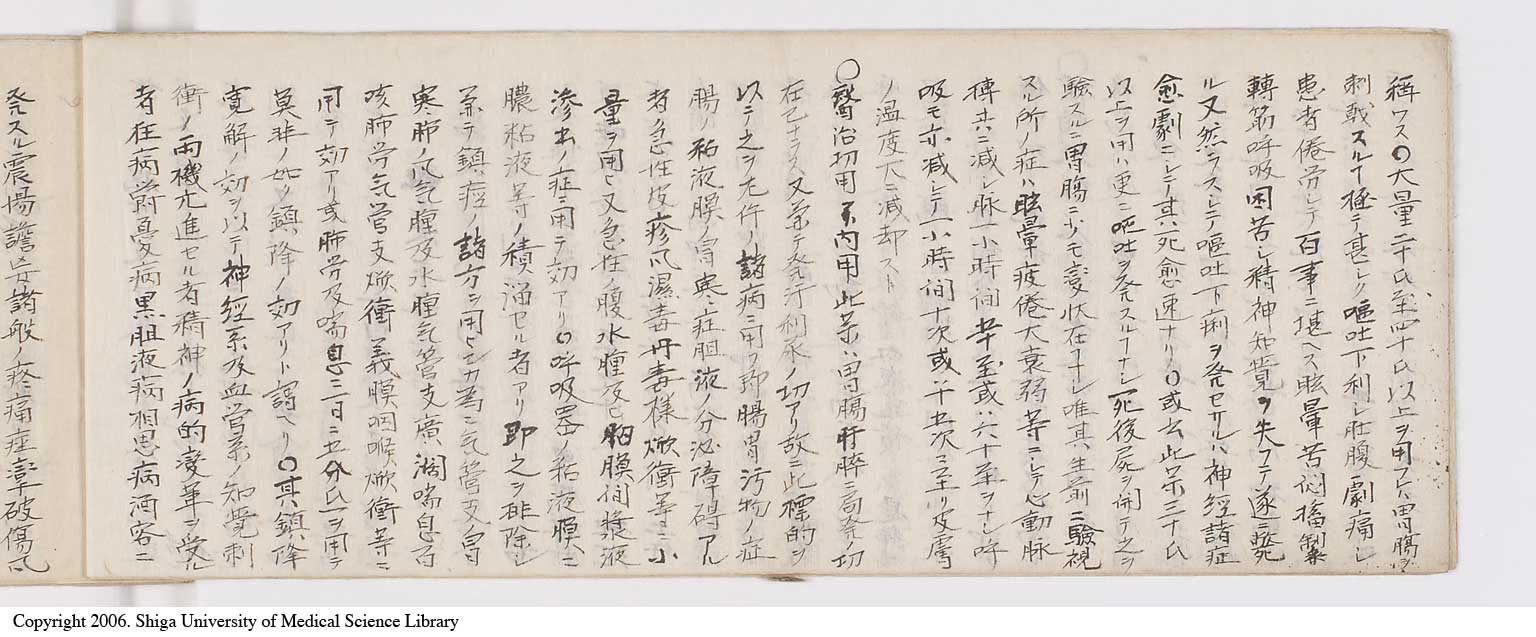 稱ワス〇大量二十氏至四十氏以上ヲ用フレハ胃腸ヲ
刺戟スルヿ極テ甚シク嘔吐下利シ肚腹劇痛シ
患者倦労シテ百事ニ堪ヘス眩暈苦悶搐掣
轉筋呼吸困苦シ精神知覚ヲ失フテ遂ニ斃
ル又然ラスシテ嘔吐下痢ヲ発セサルハ神経諸症
愈劇ニシテ其死愈速ナリ〇或云此薬三十氏
以上ヲ用ハ更ニ嘔吐ヲ発スルヿナシ死後屍ヲ開テ之ヲ
驗スルニ胃腸ニ少モ変状在ヿナシ唯其生前ニ驗視
スル所ノ症ハ眩暈疲倦大衰弱等ニシテ心動脉
搏共ニ減シ脉一小時間 至或ハ六十至ヲナシ呼
吸モ亦減シテ一小時間十次或ハ十五次ニ至リ皮膚
ノ温度大ニ減却スト
〇醫治切用 内用此薬ハ胃腸肝膵ニ局発ノ功
在已ナラス又兼テ発汗利尿ノ功アリ故ニ此標的ヲ
以テ之ヲ左件ノ諸病ニ用フ即腸胃汚物ノ症
腸ノ粘液膜ノ冒寒症胆液ノ分泌障碍アル
者急性皮疹風濕毒丹毒様焮衝等ニ小
量ヲ用ヒ又急性ノ腹水腫及ヒ胸膜間漿液
滲出ノ症ニ用テ効アリ〇呼吸器ノ粘液膜ニ
膿粘液等ノ積溜セル者アリ即之ヲ排除シ
兼テ鎮痙ノ諸方ヲ用ヒンカ為ニ気管支ノ冒
寒肺ノ気腫及水腫気管支廣濶喘息百
咳肺労気管支焮衝義膜咽喉焮衝等ニ
用テ効アリ或肺労及喘息三日ニ五分氏一ヲ用テ
莫非ノ如ク鎮降ノ効アリト謂ヘリ〇其鎮降
寛解ノ効ヲ以テ神経系及血管系ノ知覚刺
衝ノ両機亢進セル者精神ノ病的変革ヲ受ル
者狂病欝憂病黒胆液病相思病酒客ニ
発スル震揚譫妄諸般ノ疼痛痙攣破傷風